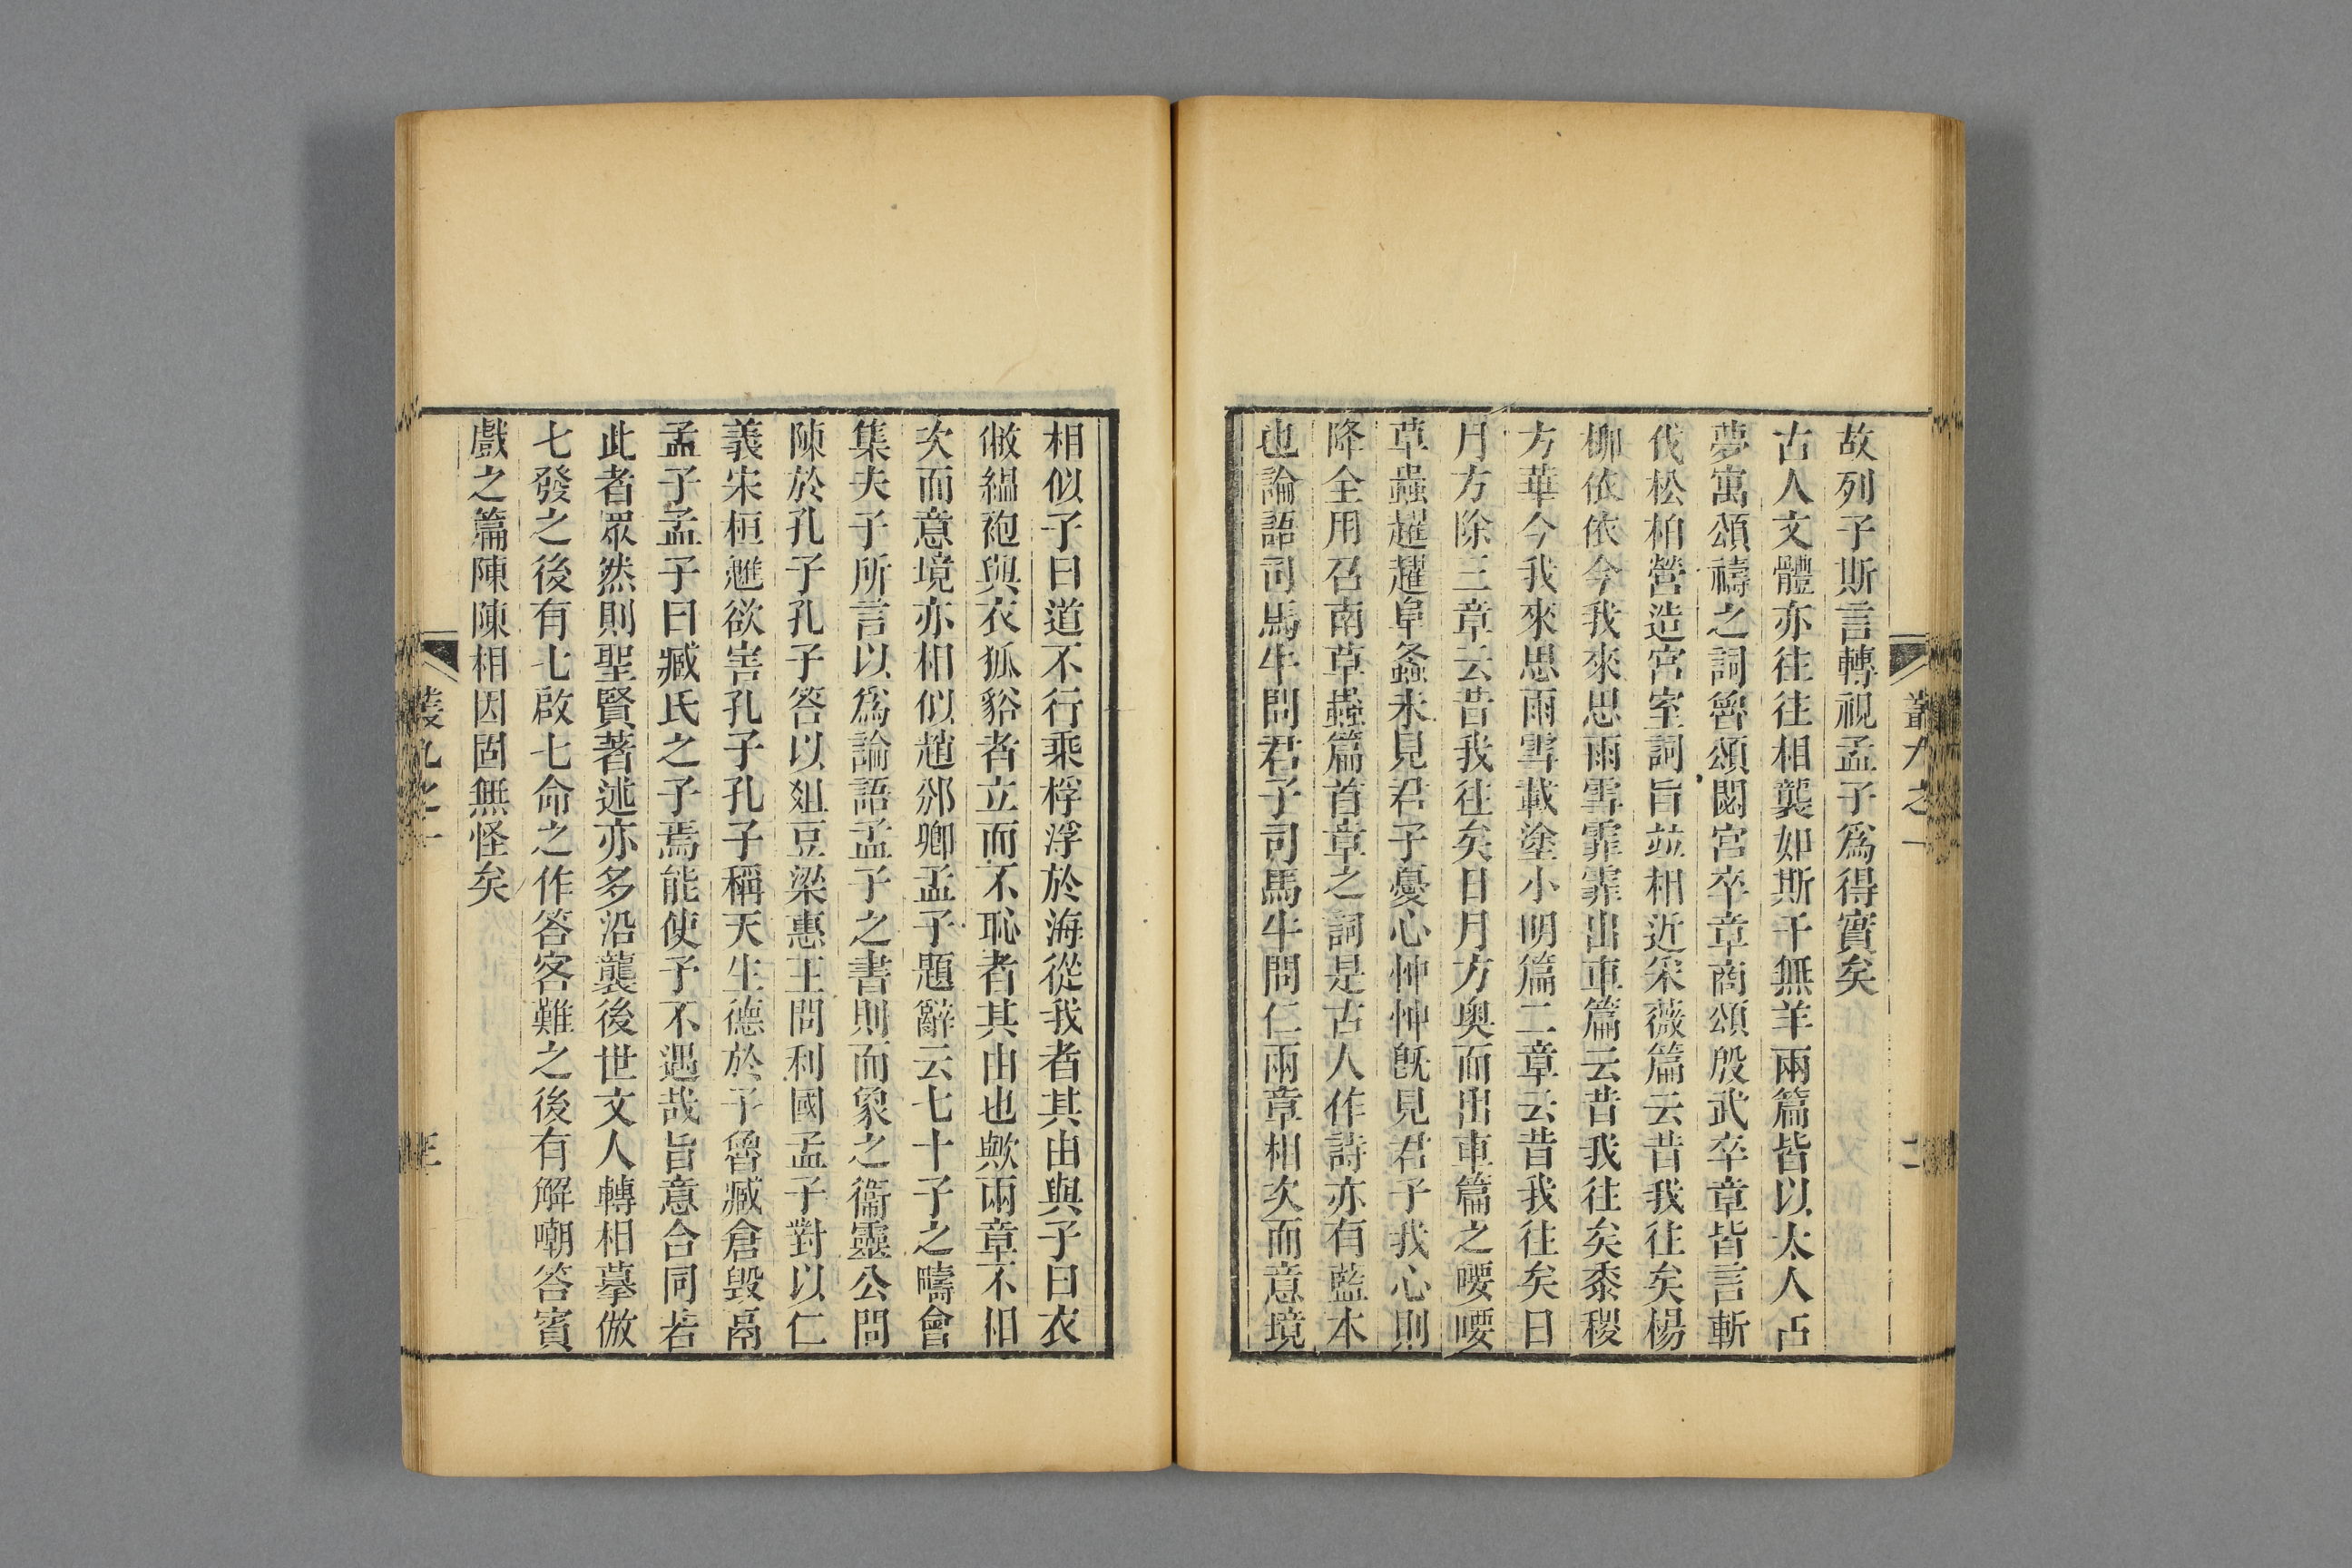 故列子斯言轉視孟子爲得實矣
古人文體亦往往相襲如斯干無羊兩篇皆以太人占
夢寓頌禱之詞魯頌閟宮卒章商頌殷武卒章皆言斬
伐松柏營造宮室詞旨竝相近采薇篇云昔我往矣楊
柳依依今我來思雨雪霏霏出車篇云昔我往矣黍稷
方華今我來思雨雪載塗小明篇二章云昔我往矣日
月方除三章云昔我往矣日月方奧而出車篇之喓喓
草蟲趯趯阜螽未見君子憂心忡忡旣見君子我心則
降全用召南草蟲篇首章之詞是古人作詩亦有藍本
也論語司馬牛問君子司馬牛問仁兩章相次而意境
相似子曰道不行乘桴浮於海從我者其由與子曰衣
敝縕袍與衣狐貉者立而不恥者其由也歟兩章不相
次而意境亦相似趙邠卿孟子題辭云七十子之疇會
集夫子所言以爲論語孟子之書則而象之衞靈公問
陳於孔子孔子答以俎豆梁惠王問利國孟子對以仁
義宋桓魋欲害孔子孔子稱天生德於予魯臧倉毀鬲
孟子孟子曰臧氏之子焉能使予不遇哉旨意合同若
此者眾然則聖賢著述亦多沿襲後世文人轉相摹倣
七發之後有七啟七命之作答客難之後有解嘲答賓
戲之篇陳陳相因固無怪矣
叢九之一
二
叢九之一
三